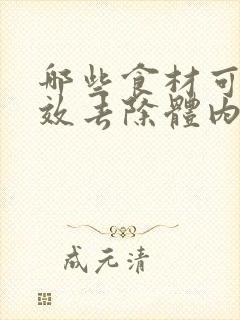 哪些食材可
效去除體內
成元清